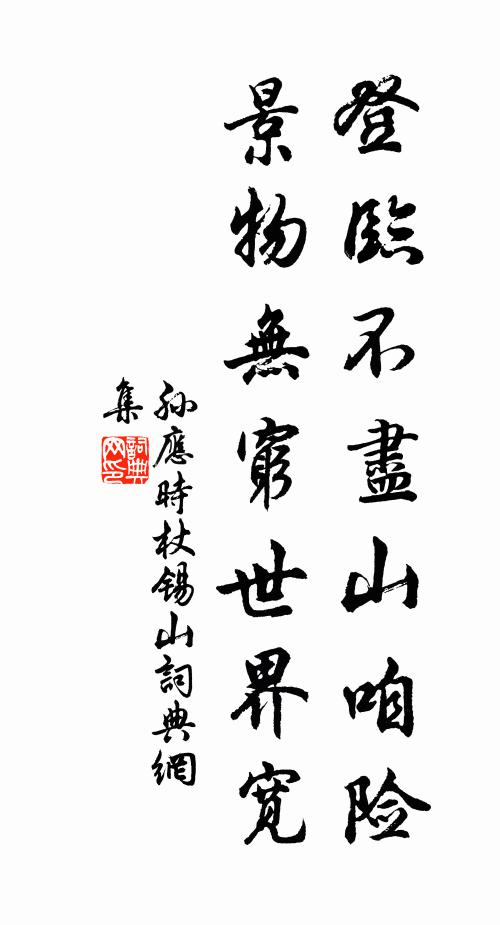 登臨不盡山咱险
景物無窮世界寬
孙應時杖锡山詞典網
集
詞典网印